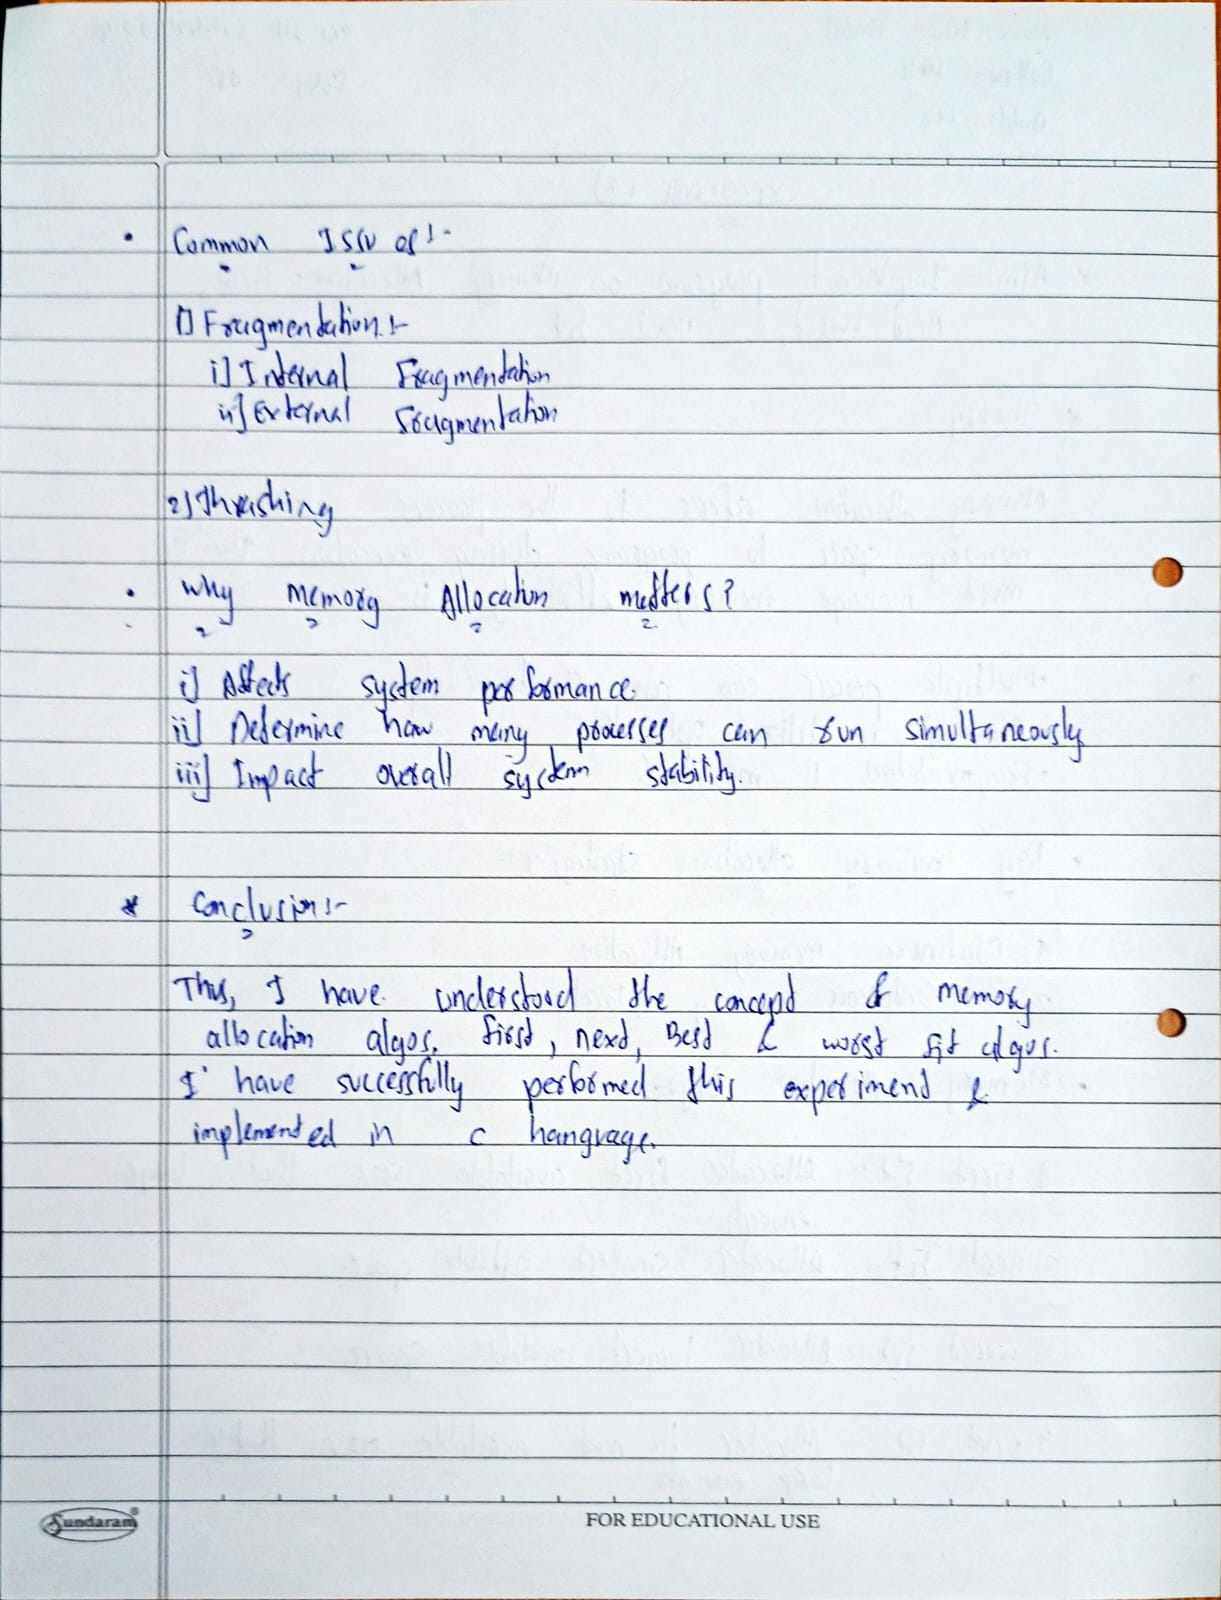 • Common Issu of :-
1] Fragmentation :-
i] Internal Fragmentation
ii] External Fragmentation
2] Thrashing
• Why Memory Allocation matters?
i] Affects system performance.
ii] Determine how many processes can run simultaneously
iii] Impact overall system stability.
* Conclusion :-
Thus, I have understood the concept of memory
allocation algos, first, next, Best & worst fit algos.
I have successfully performed this experiment &
implemented in C hangvage.
Sundaram
FOR EDUCATIONAL USE